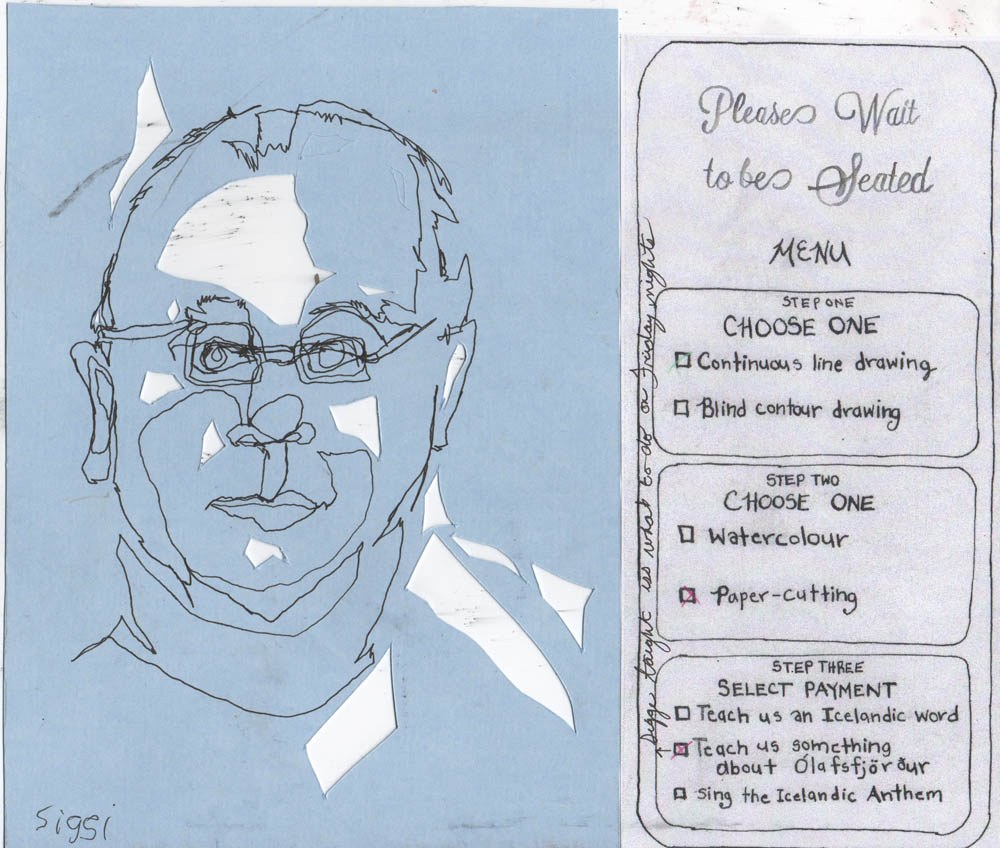 Siggi
Please Wait
to be Seated
MENU
STEP ONE
CHOOSE ONE
Continuous line drawing
Blind contour drawing
STEP TWO
CHOOSE ONE
Watercolour
Paper-cutting
STEP THREE
SELECT PAYMENT
Teach us an Icelandic word
Teach us something
about Ólafsfjörður
Sing the Icelandic Anthem
Siggi taught us what to do on Friday nights